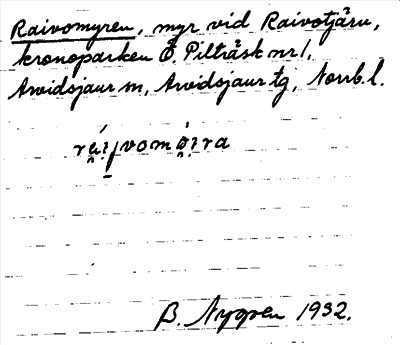 Raivomyren, myr vid Raivotjärn,
kronoparken Ö. Pilträsk nr 1,
Arvidsjaur m, Arvidsjaur tg, Norrb. l.
B. Nygren 1932.